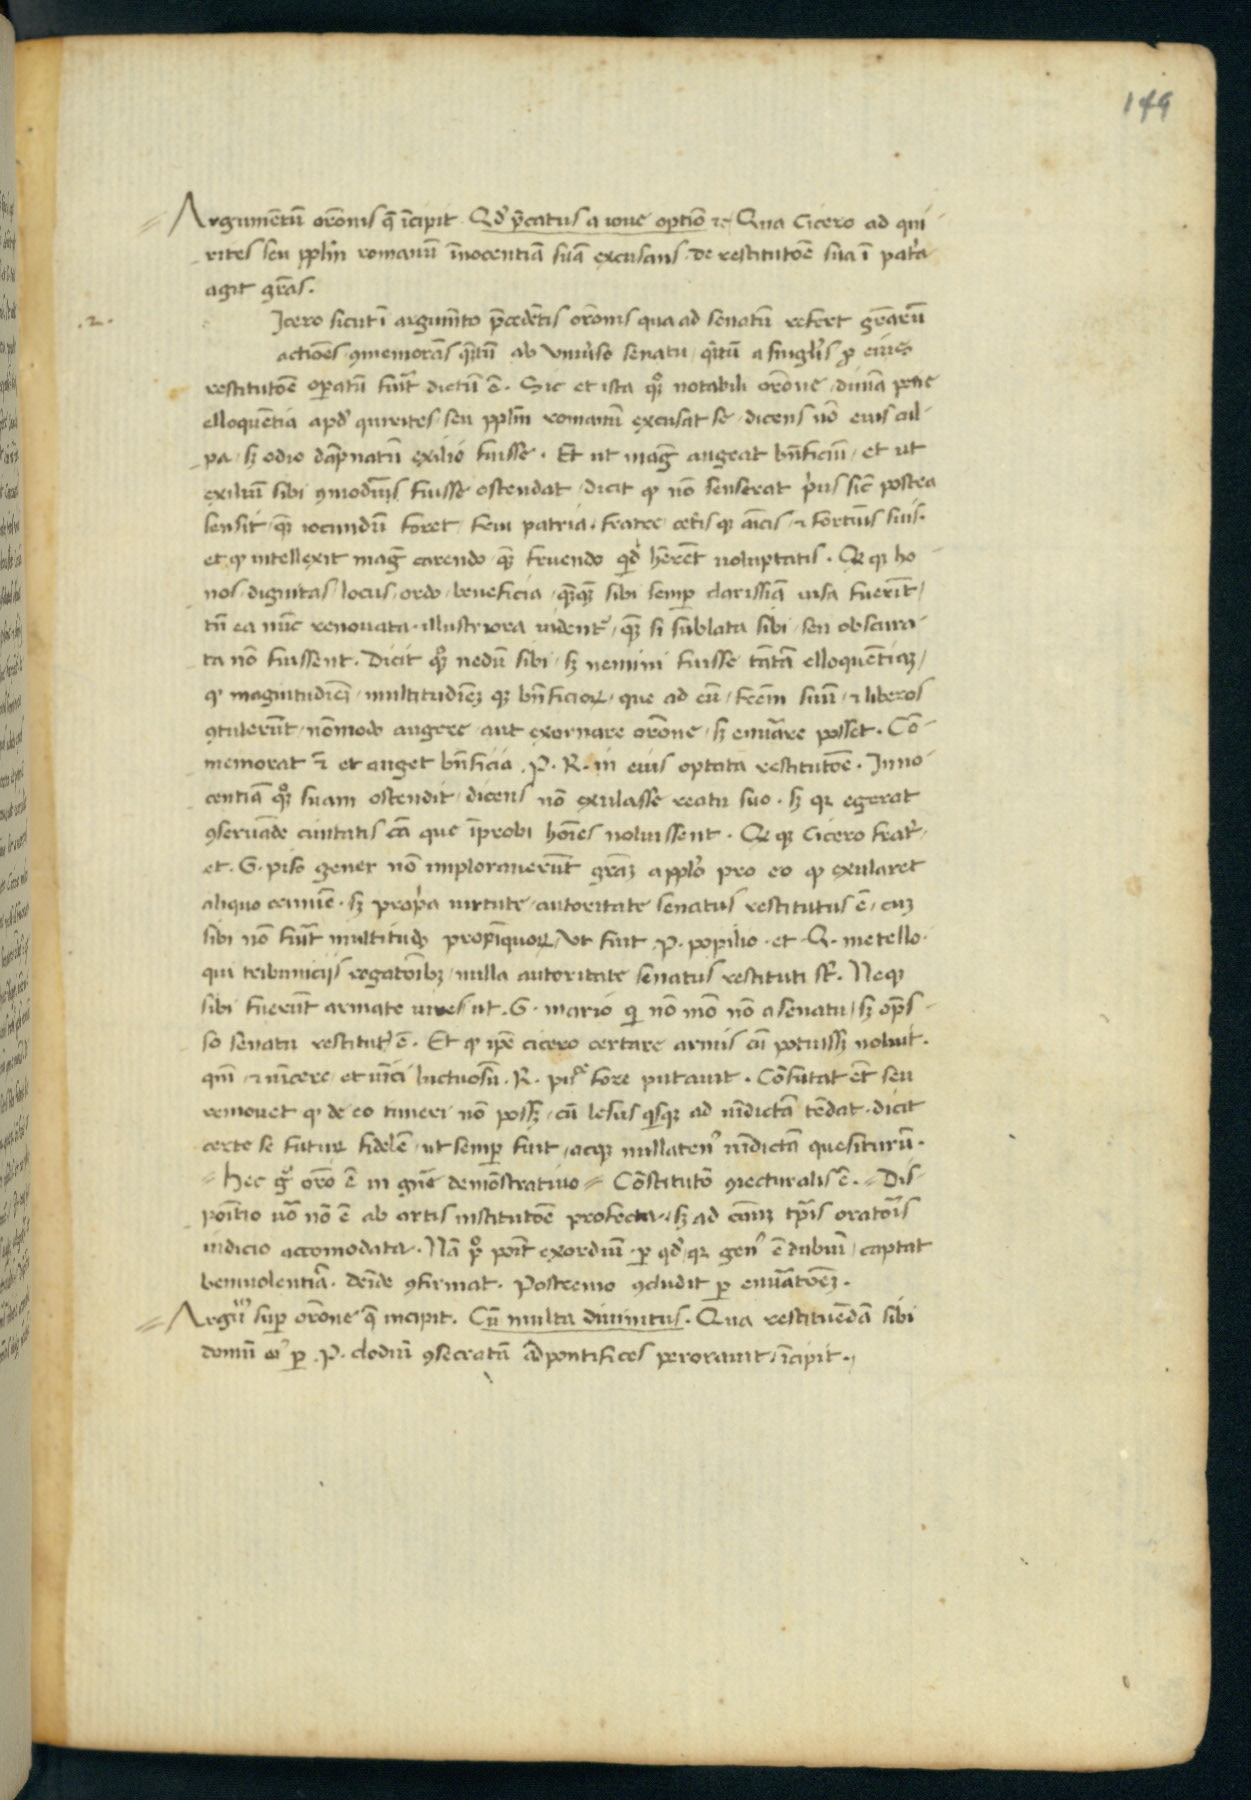 149
Argumētū orōnis q̄ īcipit Qd' p̄catus a ioue optīo ⁊c Qua Cicero ad qui
rites seu pplm̄ romanū īnocentiā suā excusans de restitutōe sua ī pat'a
agit grās.
.2.
Icero sicut ī argumēto p̄cedētis orōnis qua ad senatū refert grārū
actiōes ꝯmemorās q̄ntū ab vniūso senatu q̄ntū a singl'is ꝓ eius
restitutōe opatū fūit dictū ē. Sic et ista qꝫ notabili orōne diuīa pene
elloquētia apd' qurites seu pplm̄ romanū excusat se dicens nō eius cul
pa sꝫ odio dāpnatū exilio fuisse. Et ut maḡ augeat bn̄ficiū et ut
exiliū sibi ꝯmodius fuisse ostendat dicit ꝙ nō senserat p'us sic̄ postea
sensit q̄ iocundū foret frui patria. fratre cet'is qꝫ aīcis ⁊ fortūis suis.
et ꝙ intellexit maḡ carendo q̄ fruendo qd' hērēt uoluptatis. Et qꝫ ho
nos dignitas locus ordo beneficia q̄q̄ sibi semp clarissīa uisa fuerīt
tn̄ ea nūc renouata illustriora uident' q̄ si sublata sibi seu obscura
ta nō fuissent. Dicit qꝫ nedū sibi sꝫ nemini fuisse tātā elloquētiaꝫ
ꝙ magnitudīeꝫ multitudīeꝫ qꝫ bn̄ficioꝝ que ad eū frēm suū ⁊ liberos
ꝯtulerūt nōmodo augere aut exornare orōne sꝫ enūare posset. Cō
memorat ⁊ et auget bn̄ficia P. R. in eius optata restitutōe. Inno
centiā qꝫ suam ostendit dicens nō exulasse reatu suo. sꝫ qꝛ egerat
ꝯseruāde ciuitatis cā que īprobi hoīes noluissent. Et qꝫ Cicero frat'
et G. piso gener nō implorauerūt grāꝫ a pplo pro eo ꝙ exularet
aliquo crimīe. sꝫ prop'a uirtute autoritate senatus restitutus ē cuꝫ
sibi nō fūit multitudo propīquoꝝ Vt fuit P. popilio et Q. metello.
qui tribuniciis rogatōibꝫ nulla autoritate senatus restituti st̄. Neqꝫ
sibi fuerūt armate uires ut G. mario qi nō mō nō a senatu sꝫ op̄s
so senatu restitut' ē. Et ꝙ ip̄e cicero certare armis cū potuissꝫ noluit.
qm̄ ⁊ uīcere et uīci luctuosū R. p. fore putauit. Cōfutat ēt seu
remouet ꝙ de eo timeri nō possꝫ cū lesus q'sqꝫ ad uīdictā tēdat. dicit
certe se futuꝝ fidelē ut semp fuit acqꝫ nullaten' uīdictā quesiturū.
Hec g' orō ē in gn̄e demōstratiuo Cōstitutō ꝯiecturalis ē. Dis
poītio uō nō ē ab artis institutōe profecta sꝫ ad cāuꝫ tpis oratōis
iudicio accomodata. Nā p' poīt exordiū p qd' qꝛ gen' ē dubiū captat
beniuolentiā. deīde ꝯfirmat. Postremo ꝯcludit p enūatōeꝫ.
Argūm sup orōne q̄ incipit. Cū multa diuinitus. Qua restituēdā sibi
domū p P. clodiū ꝯsecratā ad pontifices perorauit īcipit.